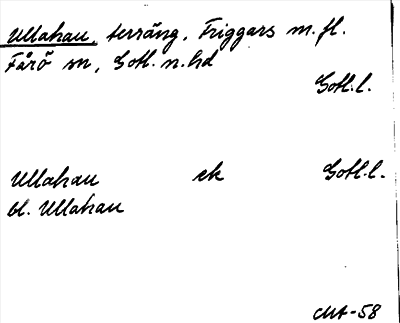 Ullahau, terräng, Friggars m.fl.
Fårö sn, Gotl. n. hd
Gotl. l.
Ullahau ek Gotl. l.
bl. Ullahau
-58